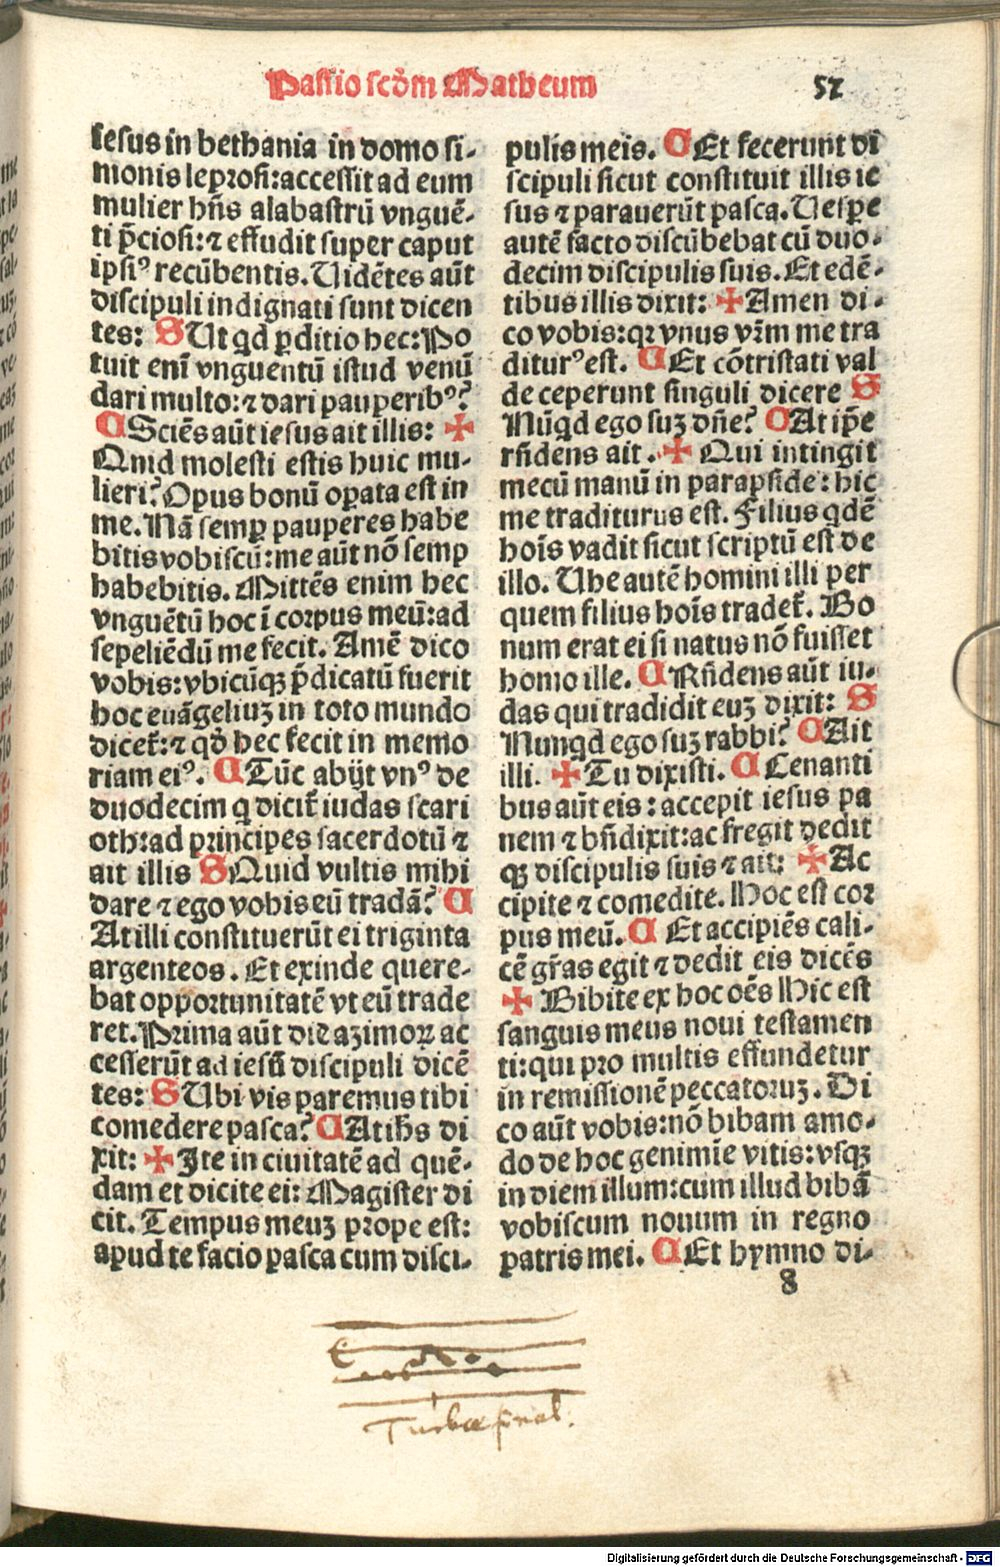 Passio scd̄m Matheum 57
Iesus in bethania in domo si-
monis leprosi: accessit ad eum
mulier hn̄s alabastrū vnguē-
ti p̄ciosi: ⁊ effudit super caput
ipsiꝰ recūbentis. Uidētes aūt
discipuli indignati sunt dicen
tes: S Ut qd ꝑditio hec: Po
tuit enī vnguentū istud venū
dari multo: ⁊ dari pauperibꝰ?
C Sciēs aūt iesus ait illis: ✠
Quid molesti estis huic mu-
lieri? Opus bonū oꝑata est in
me. Nā semꝑ pauperes habe
bitis vobiscū: me aūt nō semꝑ
habebitis. Mittēs enim hec
vnguētū hoc ī corpus meū: ad
sepeliēdū me fecit. Amē dico
vobis: vbicūqꝫ p̄dicatū fuerit
hoc euāgeliuꝫ in toto mundo
dicet̄: ⁊ qd̄ hec fecit in memo
riam eiꝰ. C Tūc abijt vnꝰ de
duodecim q dicit̄ iudas scari
oth: ad principes sacerdotū ⁊
ait illis S Quid vultis mihi
dare ⁊ ego vobis eū tradā? C
At illi constituerūt ei triginta
argenteos. Et exinde quere-
bat opportunitatē vt eū trade
ret. Prima aūt die azimoꝝ ac
cesserūt ad iesū discipuli dicē
tes: S Ubi vis paremus tibi
comedere pasca? C At ih̄s di
xit: ✠ Ite in ciuitatē ad quē-
dam et dicite ei: Magister di
cit. Tempus meuꝫ prope est:
apud te facio pasca cum disci-
pulis meis. C Et fecerunt di
scipuli sicut constituit illis ie
sus ⁊ parauerūt pasca. Uesꝑe
autē facto discūbebat cū duo-
decim discipulis suis. Et edē-
tibus illis dixit: ✠ Amen di-
co vobis: qꝛ vnus vr̄m me tra
diturꝰ est. C Et cōtristati val
de ceperunt singuli dicere S
Nūqd ego suꝫ dn̄e? C At ip̄e
rn̄dens ait. ✠ Qui intingit
mecū manū in parapside: hic
me traditurus est. Filius qdē
hoīs vadit sicut scriptū est de
illo. Uhe autē homini illi per
quem filius hoīs tradet̄. Bo
num erat ei si natus nō fuisset
homo ille. C Rn̄dens aūt iu-
das qui tradidit euꝫ dixit: S
Nunqd ego suꝫ rabbi? C Ait
illi. ✠ Tu dixisti. C Cenanti
bus aūt eis: accepit iesus pa
nem ⁊ bn̄dixit: ac fregit dedit
qꝫ discipulis suis ⁊ ait: ✠ Ac
cipite ⁊ comedite. Hoc est cor
pus meū. C Et accipiēs cali-
cē gr̄as egit ⁊ dedit eis dicēs
✠ Bibite ex hoc oēs Hic est
sanguis meus noui testamen
ti: qui pro multis effundetur
in remissionē peccatoruꝫ. Di
co aūt vobis: nō bibam amo-
do de hoc genimīe vitis: vsqꝫ
in diem illum: cum illud bibā
vobiscum nouum in regno
patris mei. C Et hymno di-
8
Digitalisierung gefördert durch die Deutsche Forschungsgemeinschaft - DFG